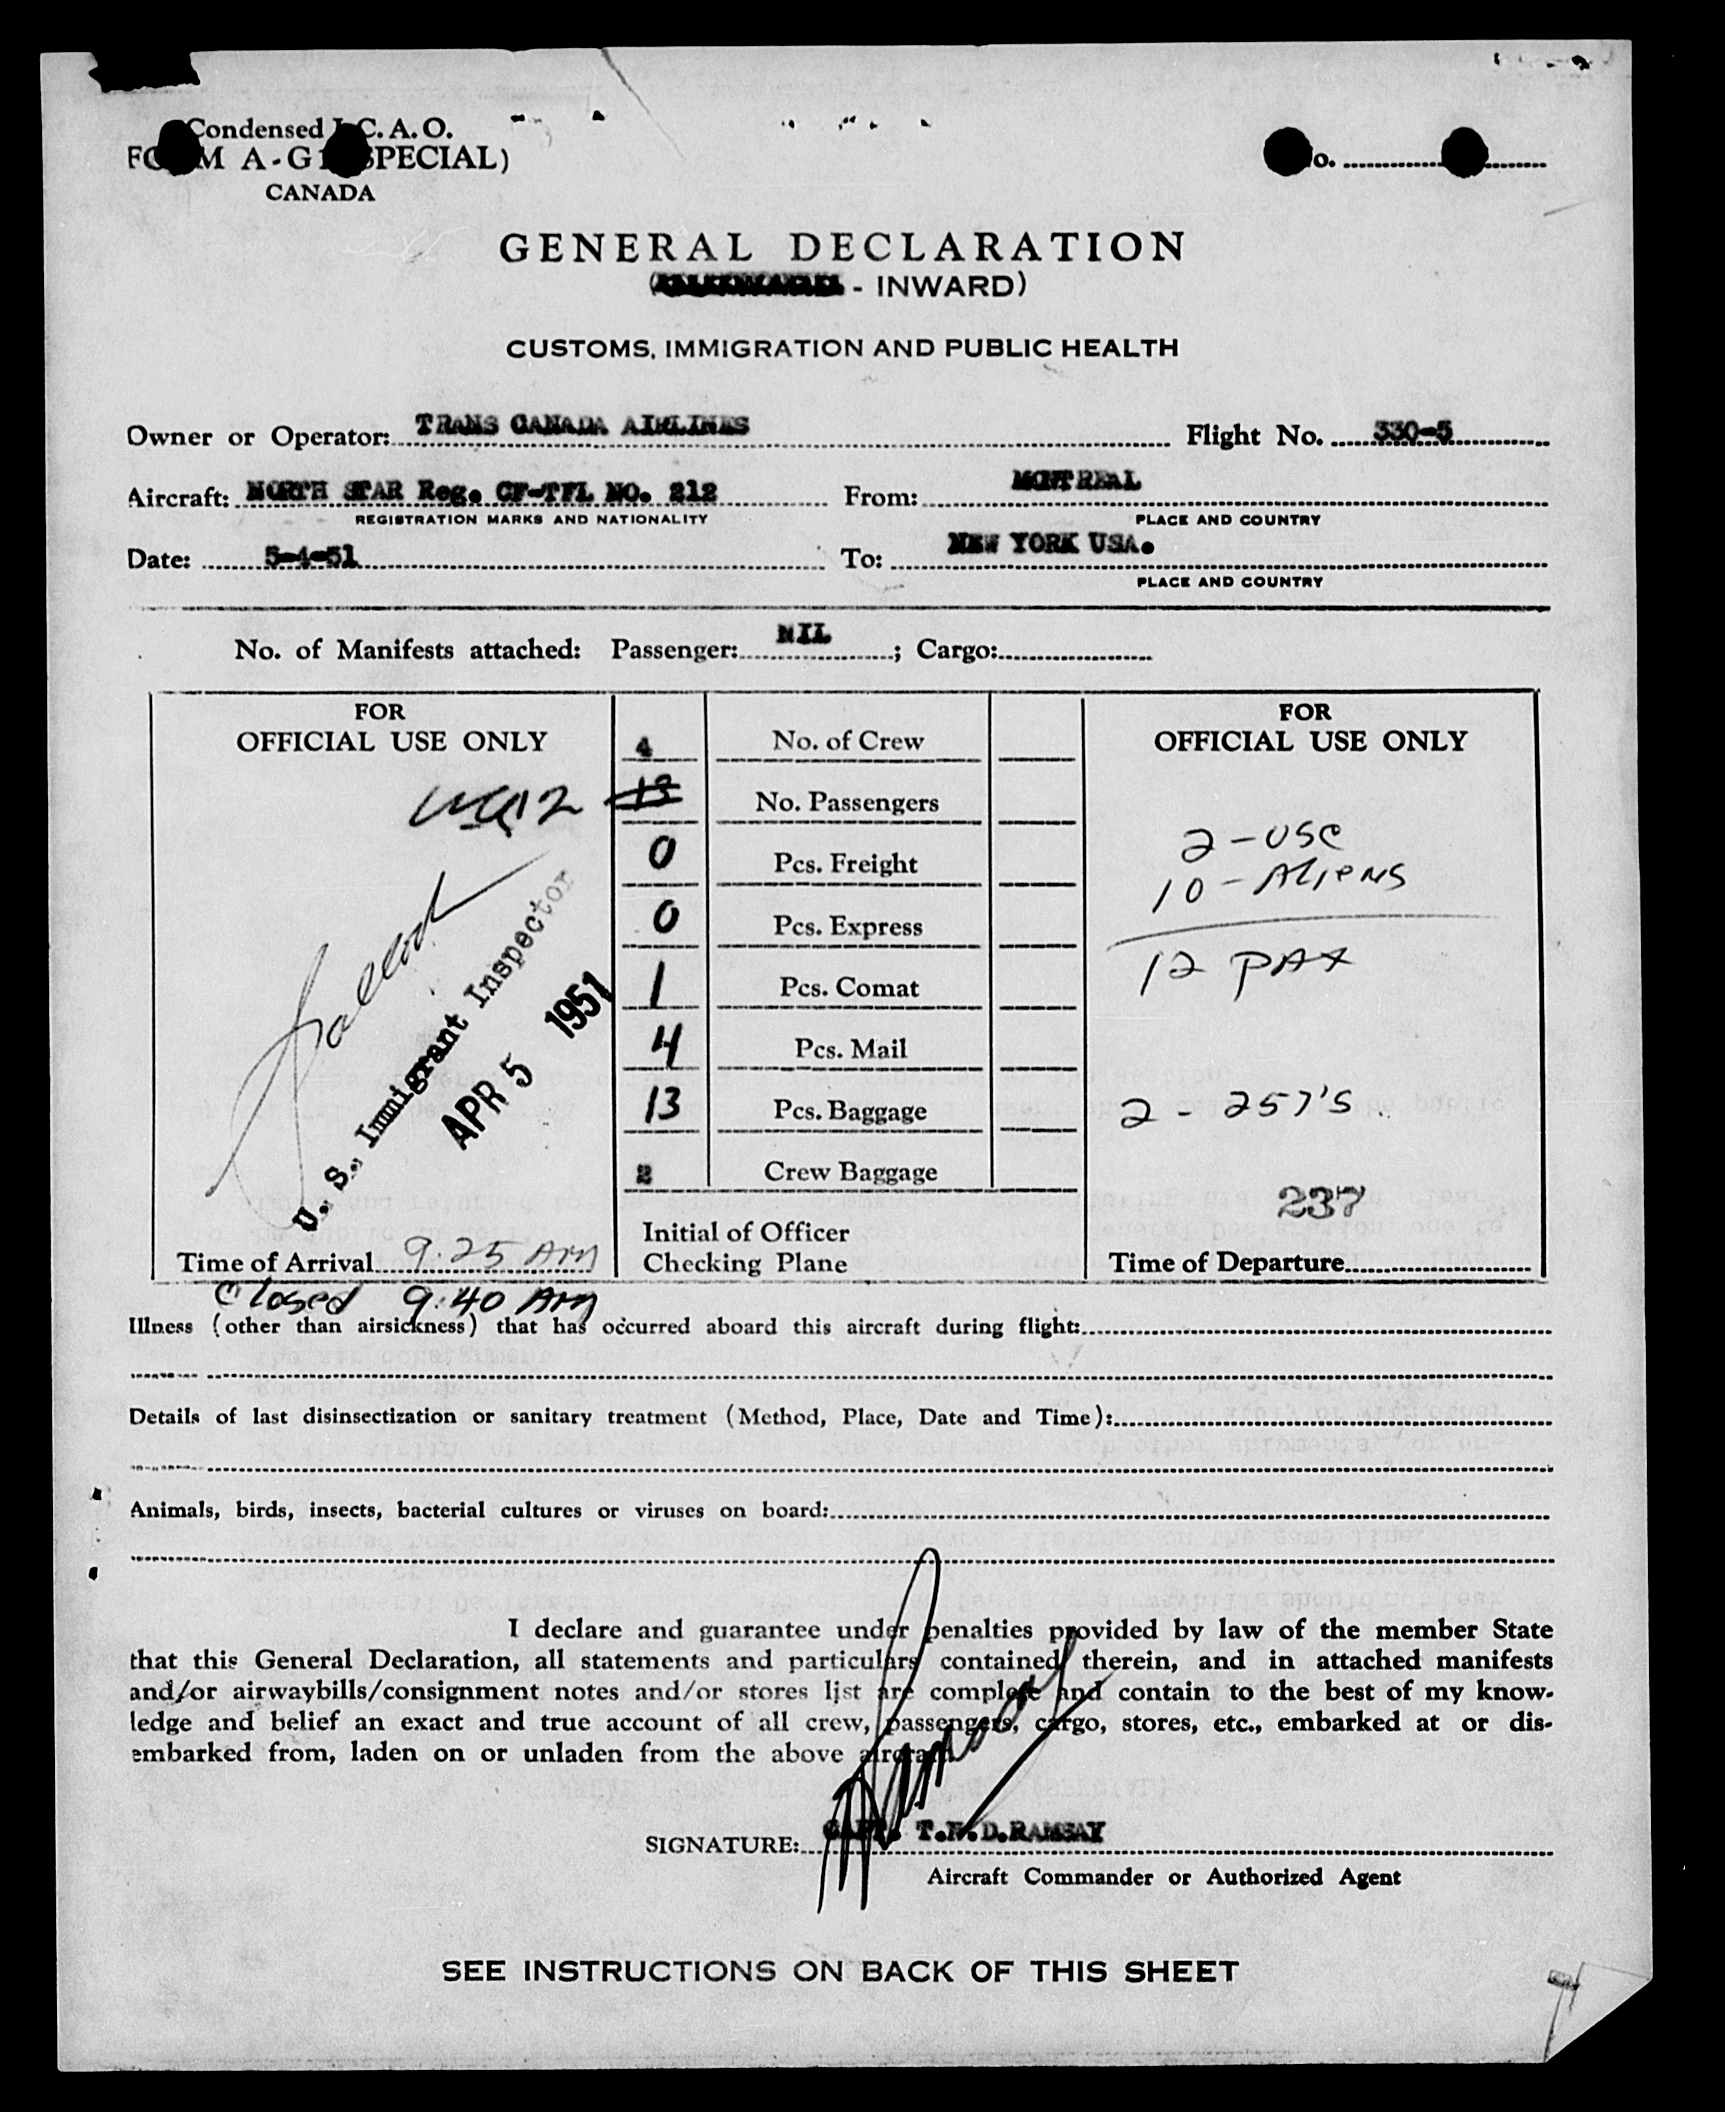 Condensed I.C.A.O.
FORM A-G1 (SPECIAL)
CANADA
No.
GENERAL DECLARATION
- INWARD)
CUSTOMS, IMMIGRATION AND PUBLIC HEALTH
Owner or Operator: TRANS CANADA AIRLINES Flight No. 330-5
Aircraft: NORTH STAR Reg. CF-TFL NO. 212 From: MONTREAL
REGISTRATION MARKS AND NATIONALITY PLACE AND COUNTRY
Date: 5-4-51 To: NEW YORK USA.
PLACE AND COUNTRY
No. of Manifests attached: Passenger: NIL; Cargo:
FOR
OFFICIAL USE ONLY
12
U. S. Immigrant Inspector
APR 5 1951
Time of Arrival 9:25 Am
Closed 9:40 Am
4 No. of Crew
13 No. Passengers
0 Pcs. Freight
0 Pcs. Express
1 Pcs. Comat
4 Pcs. Mail
13 Pcs. Baggage
2 Crew Baggage
Initial of Officer
Checking Plane
FOR
OFFICIAL USE ONLY
2 - USC
10 - Aliens
12 PAX
2 - 257's
237
Time of Departure
Illness (other than airsickness) that has occurred aboard this aircraft during flight:
Details of last disinsectization or sanitary treatment (Method, Place, Date and Time):
Animals, birds, insects, bacterial cultures or viruses on board:
I declare and guarantee under penalties provided by law of the member State
that this General Declaration, all statements and particulars contained therein, and in attached manifests
and/or airwaybills/consignment notes and/or stores list are complete and contain to the best of my know-
ledge and belief an exact and true account of all crew, passengers, cargo, stores, etc., embarked at or dis-
embarked from, laden on or unladen from the above aircraft.
SIGNATURE: CAPT. T.F.D.RAMSAY
Aircraft Commander or Authorized Agent
SEE INSTRUCTIONS ON BACK OF THIS SHEET